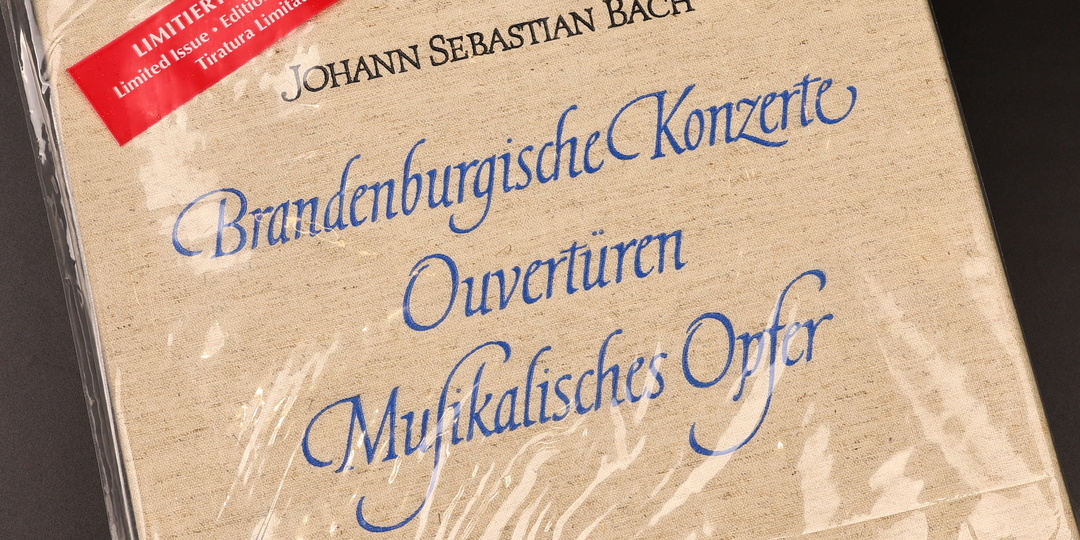 LIMITIERT
Limited Issue • Edition
Tiratura Limitat
JOHANN SEBASTIAN BACH
Brandenburgische Konzerte
Ouvertüren
Muſikalisches Opfer